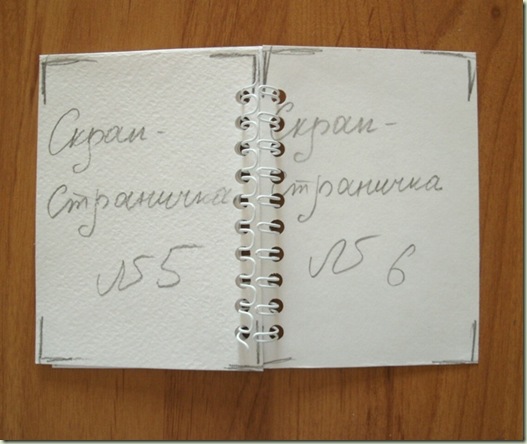 Скрап-
Страничка
№5
Скрап-
Страничка
№ 6